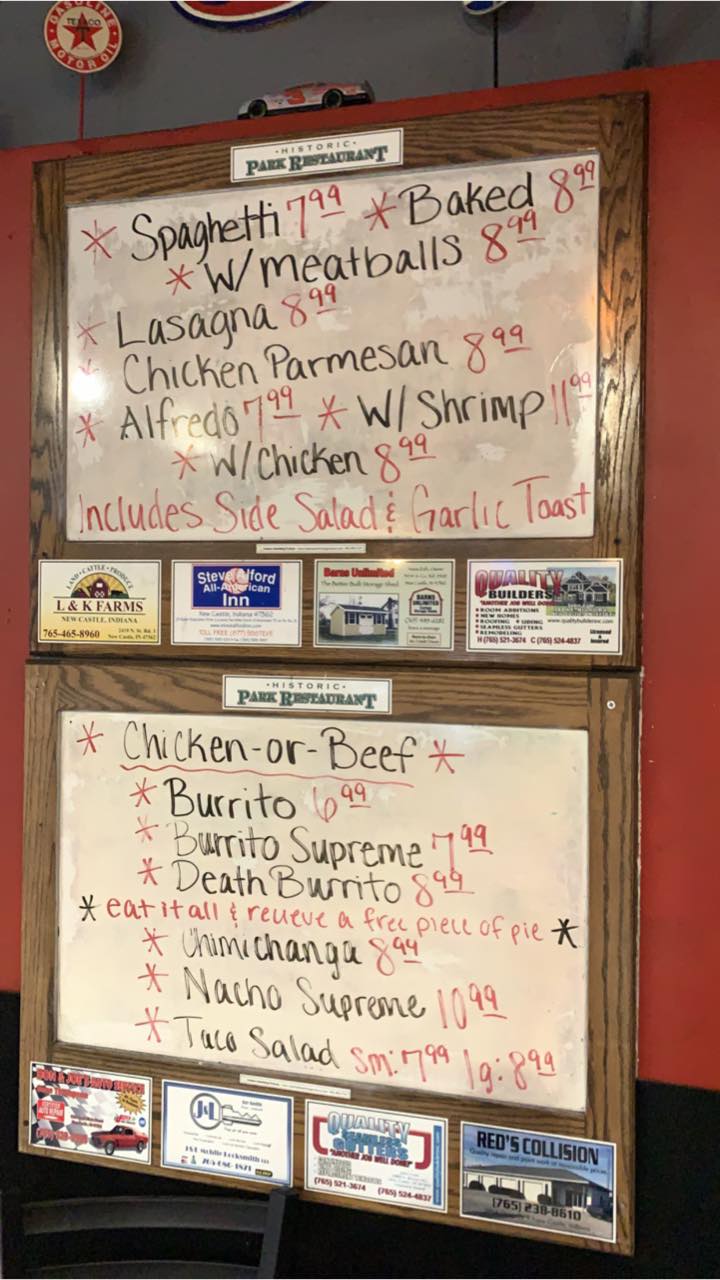 GASOLINE
TEXACO
MOTOR OIL
3
·HISTORIC·
PARK RESTAURANT
* Spaghetti 7.99 * Baked 8.99
* W/meatballs 8.99
* Lasagna 8.99
* Chicken Parmesan 8.99
* Alfredo 7.99 * W/Shrimp 11.99
* W/Chicken 8.99
Includes Side Salad & Garlic Toast
LAND · CATTLE · PRODUCE
L & K FARMS
NEW CASTLE, INDIANA
765-465-8960
Steve Alford
All-American
Inn
New Castle, Indiana 47362
TOLL FREE
Barns Unlimited
BARNS
UNLIMITED
QUALITY
BUILDERS
"ANOTHER JOB WELL DONE"
ROOM ADDITIONS
NEW HOMES
ROOFING SIDING
SEAMLESS GUTTERS
REMODELING
www.qualitybuildersnc.com
Licensed & Insured
H (765) 521-3674 C (765) 524-4837
·HISTORIC·
PARK RESTAURANT
* Chicken-or-Beef *
* Burrito 6.99
* Burrito Supreme 7.99
* Death Burrito 8.99
* eat it all & recieve a free piece of pie *
* Chimichanga 8.99
* Nacho Supreme 10.99
* Taco Salad sm: 7.99 lg: 8.99
J&L
J&L Mobile Locksmith
QUALITY
SEAMLESS
GUTTERS
"ANOTHER JOB WELL DONE"
(765) 521-3674 (765) 524-4837
RED'S COLLISION
Quality repair and paint work at reasonable prices.
(765) 238-8610